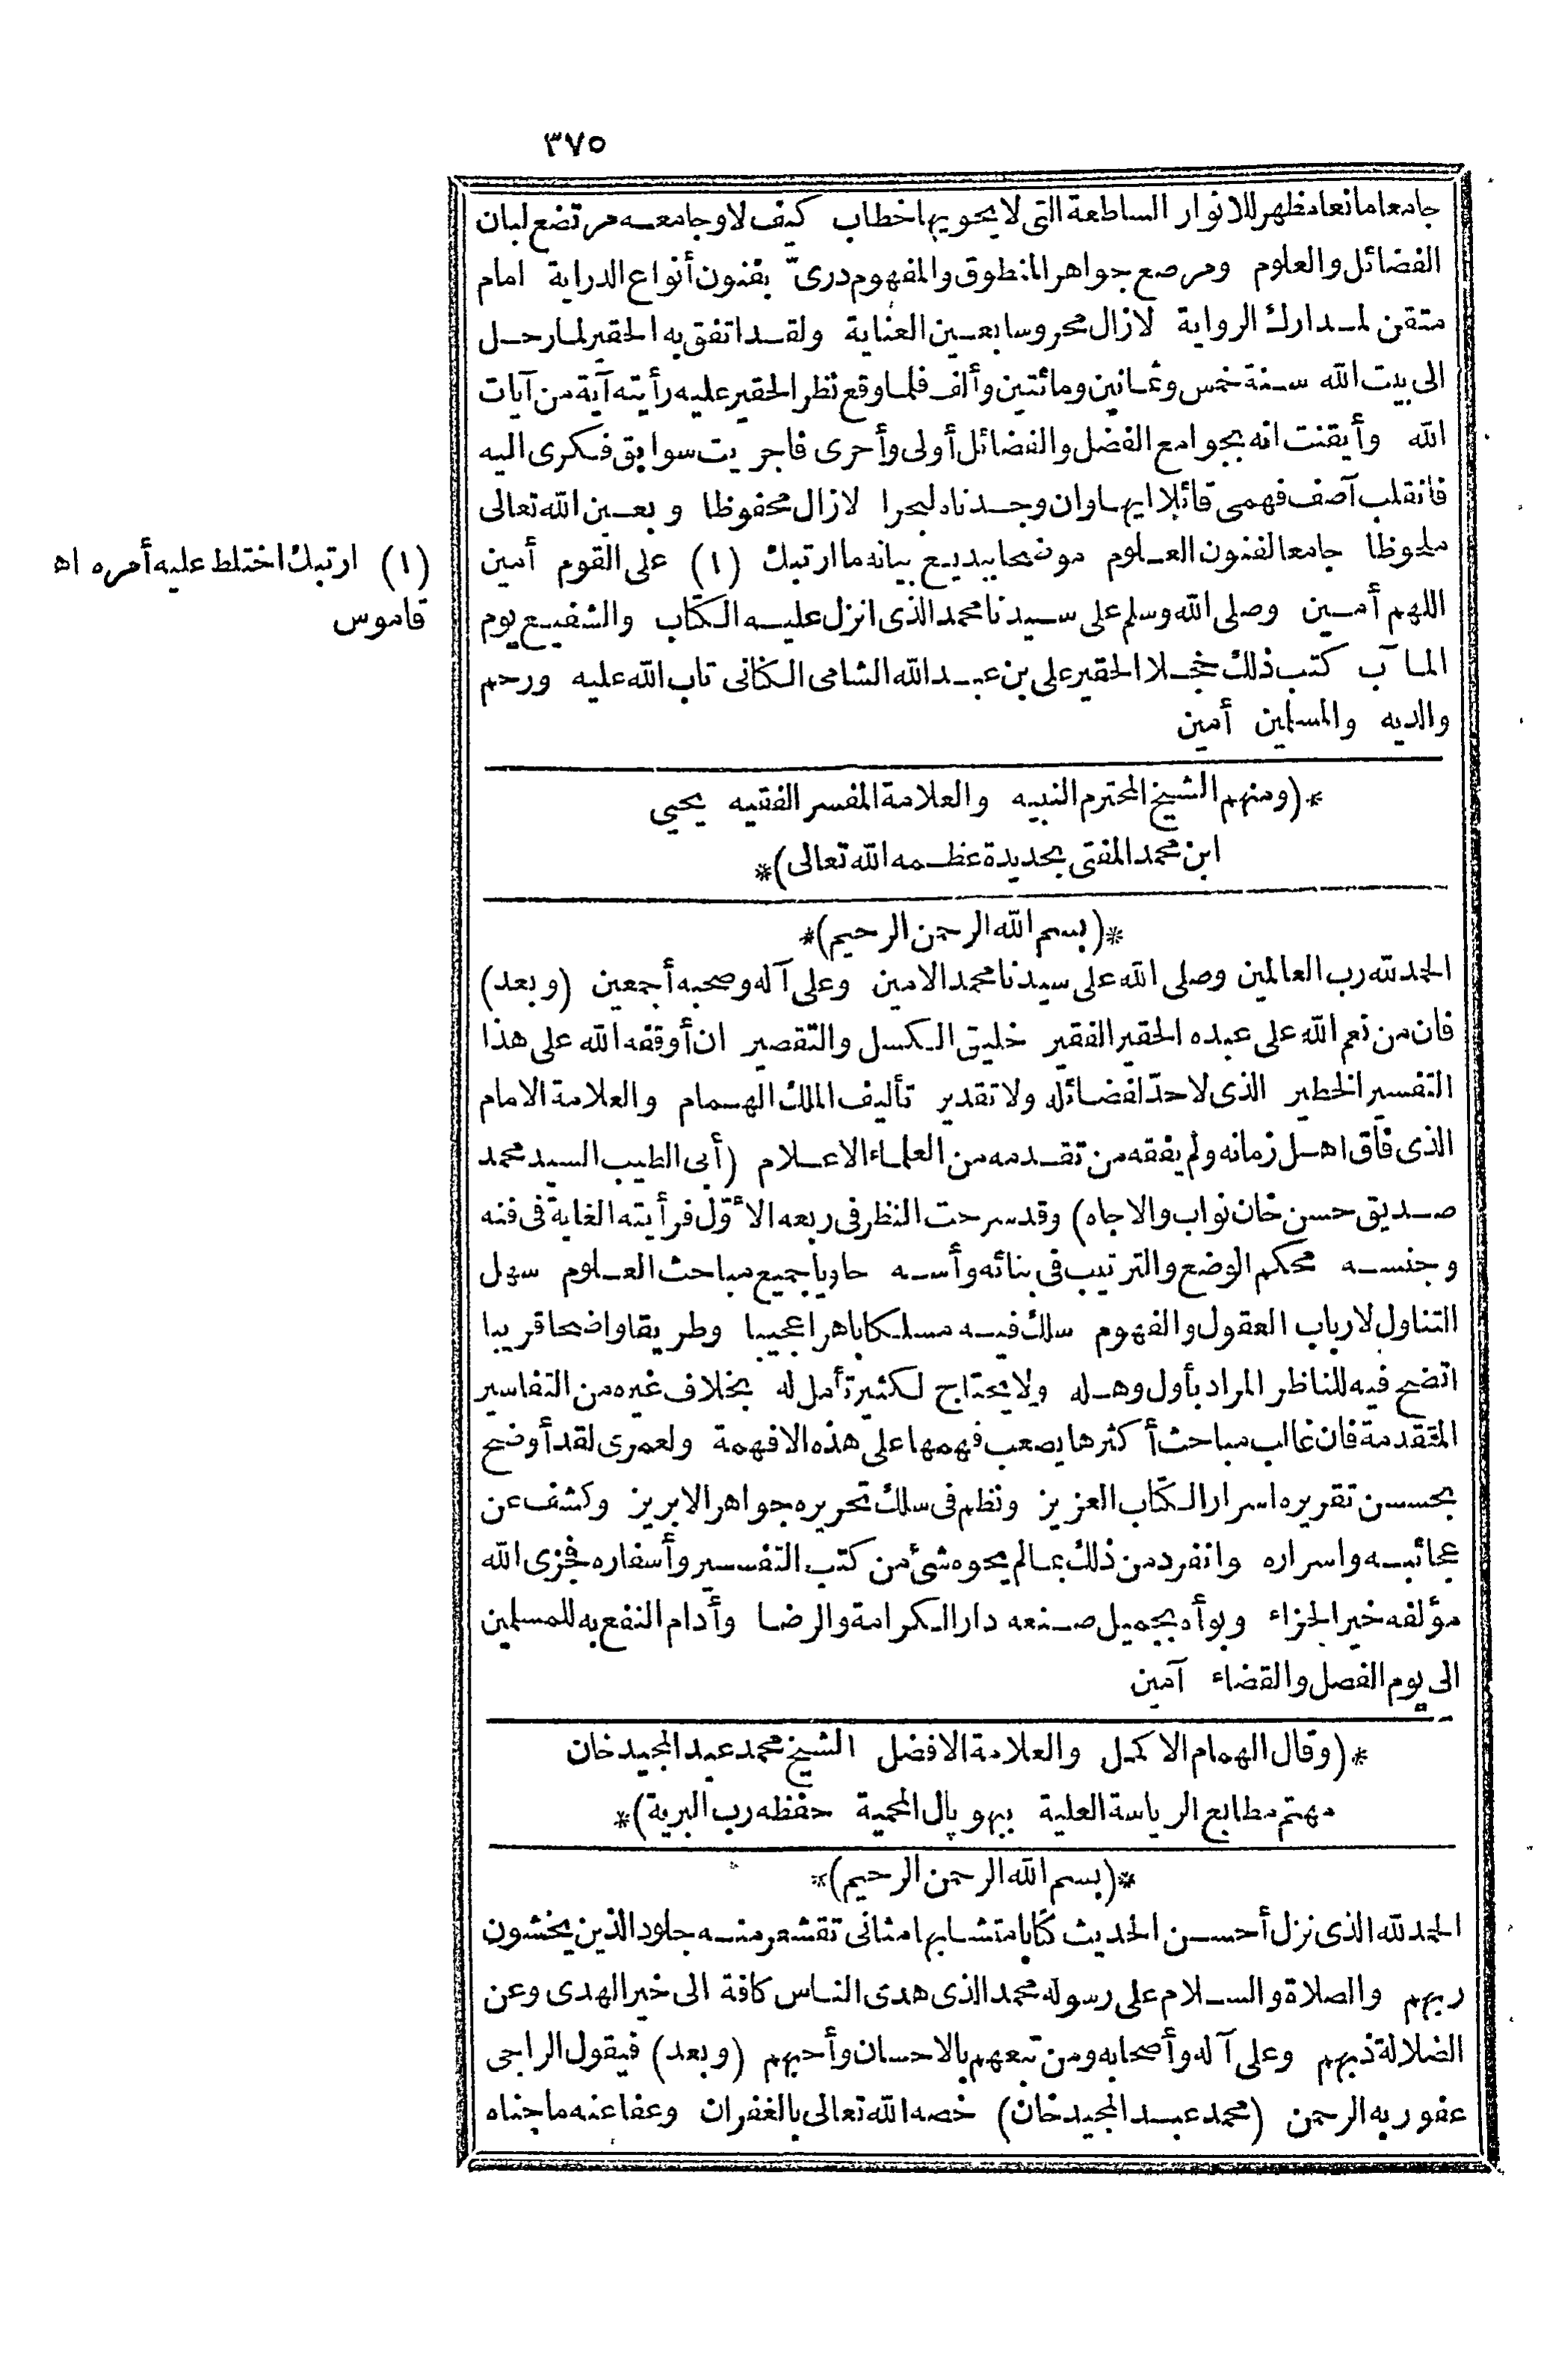 ٣٧٥
جامعا مانعا مظهر للانوار الساطعة التى لا يحويها خطاب كيف لا وجامعه مرتضع لبان
الفضائل والعلوم ومرصع جواهر المنطوق والمفهوم درىّ بفنون أنواع الدراية امام
متقن لمدارك الرواية لازال محروسا بعين العناية ولقد اتفق به الحقير لما رحل
الى بيت الله سنة خمس وثمانين ومائتين وألف فلما وقع نظر الحقير عليه رأيته آية من آيات
الله وأيقنت انه بجوامع الفضل والفضائل أولى وأحرى فاجريت سوابق فكرى اليه
فانقلب آصف فهمى قائلا ايها وان وجدناه لبحرا لازال محفوظا وبعين الله تعالى
ملحوظا جامعا لفنون العلوم موضحا ببديع بيانه ما ارتبك (١) على القوم أمين
اللهم أمين وصلى الله وسلم على سيدنا محمد الذى انزل عليه الكتاب والشفيع يوم
المآب كتب ذلك خجلا الحقير على بن عبد الله الشامى الكنانى تاب الله عليه ورحم
والديه والمسلمين أمين
(١) ارتبك اختلط عليه أمره اه
قاموس
*(ومنهم الشيخ المحترم النبيه والعلامة المفسر الفقيه يحيى
ابن محمد المفتى بحديدة عظمه الله تعالى)*
*(بسم الله الرحمن الرحيم)*
الحمد لله رب العالمين وصلى الله على سيدنا محمد الامين وعلى آله وصحبه أجمعين (وبعد)
فان من نعم الله على عبده الحقير الفقير خليق الكسل والتقصير ان أوقفه الله على هذا
التفسير الخطير الذى لا حدّ لفضائله ولا تقدير تأليف الملك الهمام والعلامة الامام
الذى فاق اهل زمانه ولم يفقه من تقدمه من العلماء الاعلام (أبى الطيب السيد محمد
صديق حسن خان نواب والاجاه) وقد سرحت النظر فى ربعه الأوّل فرأيته الغاية فى فنه
وجنسه محكم الوضع والترتيب فى بنائه وأسه حاويا جميع مباحث العلوم سهل
التناول لارباب العقول والفهوم سلك فيه مسلكا باهرا عجيبا وطريقا واضحا قريبا
اتضح فيه للناظر المراد بأول وهله ولا يحتاج لكثير تأمل له بخلاف غيره من التفاسير
المتقدمة فان غالب مباحث أكثرها يصعب فهمها على هذه الافهمة ولعمرى لقد أوضح
بحسن تقريره اسرار الكتاب العزيز ونظم فى سلك تحريره جواهر الابريز وكشف عن
عجائبه واسراره وانفرد من ذلك بما لم يحوه شئ من كتب التفسير وأسفاره فجزى الله
مؤلفه خير الجزاء وبوأه بجميل صنعه دار الكرامة والرضا وأدام النفع به للمسلمين
الى يوم الفصل والقضاء آمين
*(وقال الهمام الاكمل والعلامة الافضل الشيخ محمد عبد المجيد خان
مهتم مطابع الرياسة العلية ببهوپال المحمية حفظه رب البرية)*
*(بسم الله الرحمن الرحيم)*
الحمد لله الذى نزل أحسن الحديث كتابا متشابها مثانى تقشعر منه جلود الذين يخشون
ربهم والصلاة والسلام على رسوله محمد الذى هدى الناس كافة الى خير الهدى وعن
الضلالة ذبهم وعلى آله وأصحابه ومن تبعهم بالاحسان وأحبهم (وبعد) فيقول الراجى
عفو ربه الرحمن (محمد عبد المجيد خان) خصه الله تعالى بالغفران وعفا عنه ما جناه